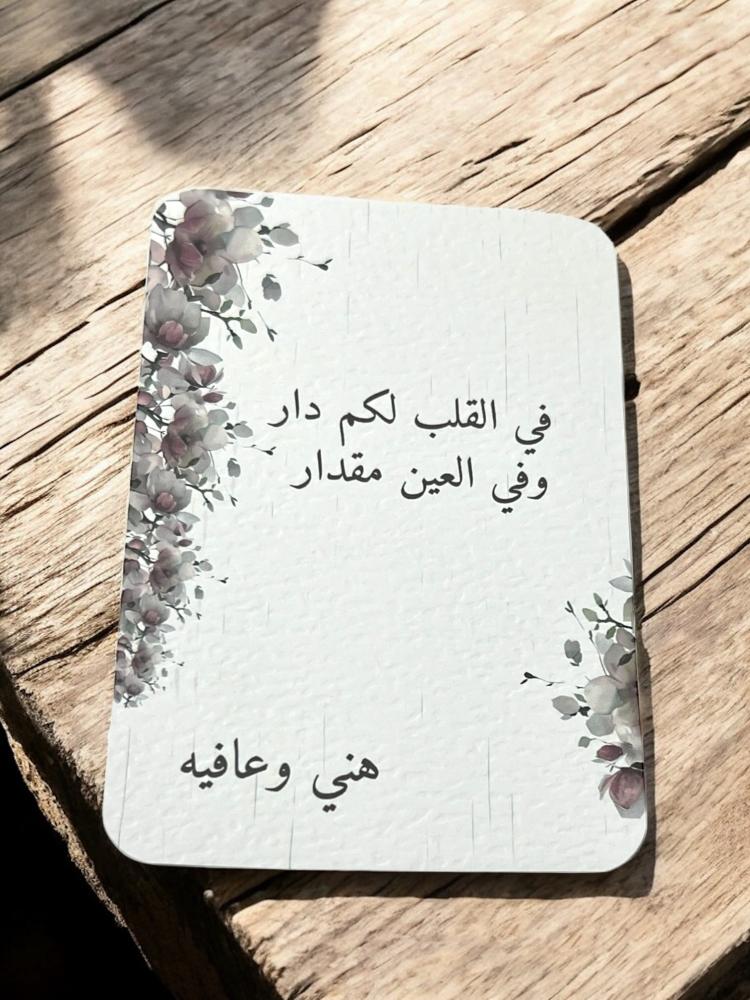 في القلب لكم دار
وفي العين مقدار
هني وعافيه